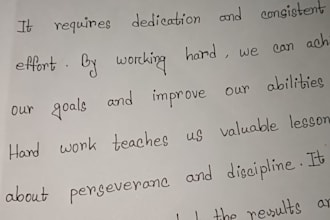 It requires dedication and consistent
effort. By working hard, we can ach
our goals and improve our abilities
Hard work teaches us valuable lesson
about perseveranc and discipline. It
the results